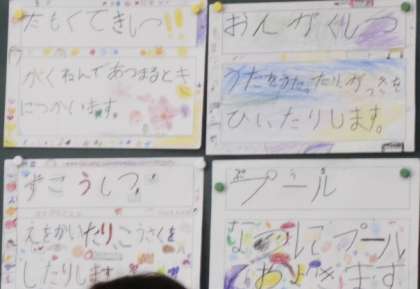 たもくてきしつ
がくねんであつまるとキ
につかいます。
おんがくしつ
うたをうたったり、がっきを
ひいたりします。
ずこうしつ
えをかいたり、こうさくを
したりします
プール
プール
およぎます